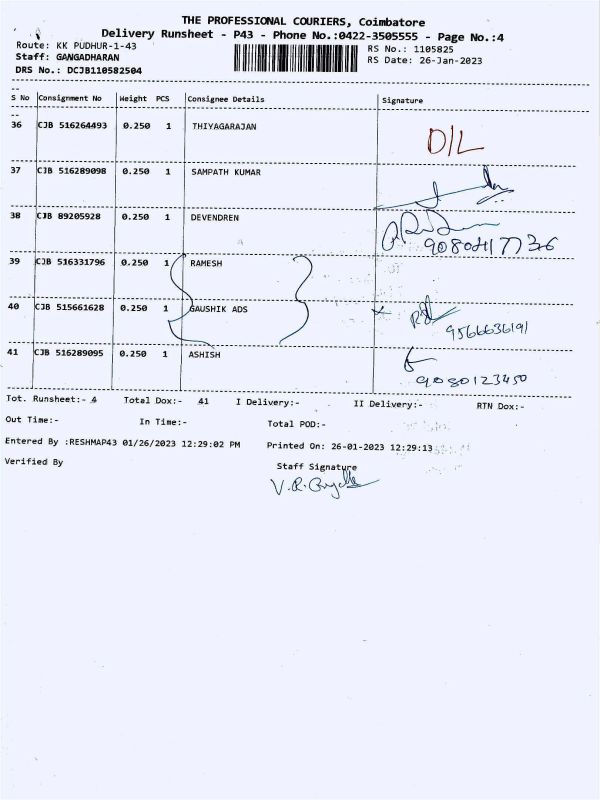 THE PROFESSIONAL COURIERS, Coimbatore
Delivery Runsheet - P43 - Phone No.:0422-3505555 - Page No.:4
Route: KK PUDHUR-1-43
RS No.: 1105825
Staff: GANGADHARAN
RS Date: 26-Jan-2023
DRS No.: DCJB110582504
S No Consignment No Weight PCS Consignee Details Signature
36 CJB 516264493 0.250 1 THIYAGARAJAN D/L
37 CJB 516289098 0.250 1 SAMPATH KUMAR
38 CJB 89205928 0.250 1 DEVENDREN
39 CJB 516331796 0.250 1 RAMESH
40 CJB 515661628 0.250 1 GAUSHIK ADS
9566636191
41 CJB 516289095 0.250 1 ASHISH
9080123450
Tot. Runsheet:- 4 Total Dox:- 41 I Delivery:- II Delivery:- RTN Dox:-
Out Time:- In Time:- Total POD:-
Entered By :RESHMAP43 01/26/2023 12:29:02 PM Printed On: 26-01-2023 12:29:13
Verified By
Staff Signature